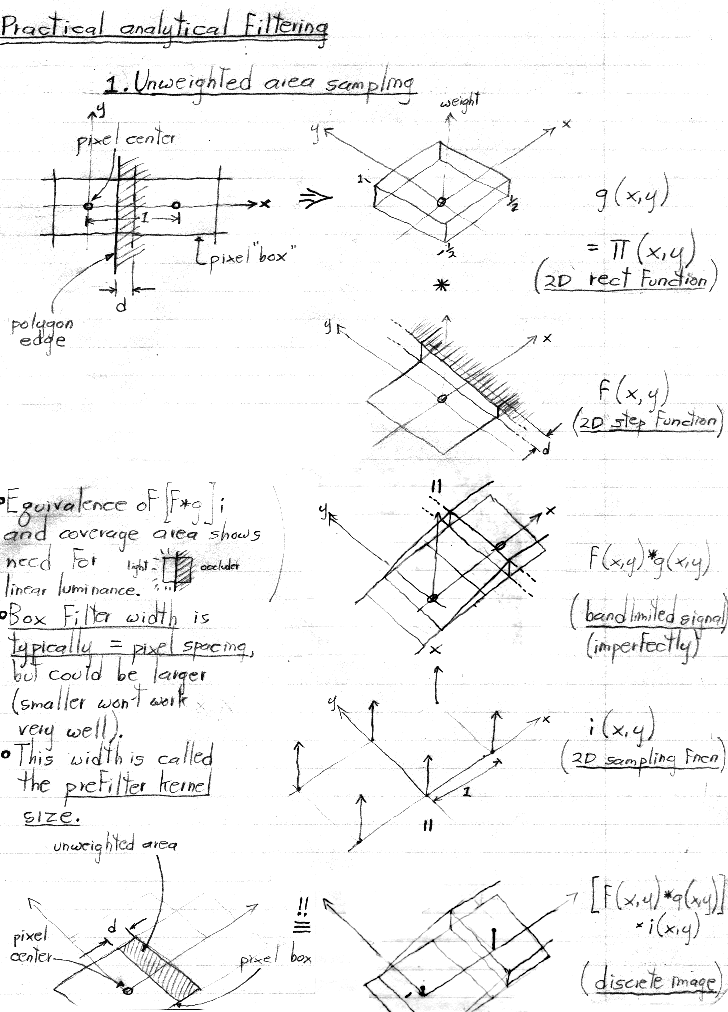 Practical analytical Filtering
1. Unweighted area sampling
y
pixel center
x
1
pixel "box"
polygon
edge
d
⇒
weight
y
x
1
½
-½
g(x,y)
= Π(x,y)
(2D rect Function)
*
y
x
d
F(x,y)
(2D step Function)
Equivalence of [F*g]i
and coverage area shows
need For light occluder
linear luminance.
Box Filter width is
typically = pixel spacing,
but could be larger
(smaller won't work
very well).
This width is called
the preFilter kernel
size.
=
y
x
F(x,y)*g(x,y)
(bandlimited signal)
(imperfectly)
×
y
x
1
i(x,y)
(2D sampling Fncn)
=
unweighted area
d
pixel
center
pixel box
!!
≡
[F(x,y)*g(x,y)]
·i(x,y)
(discrete image)